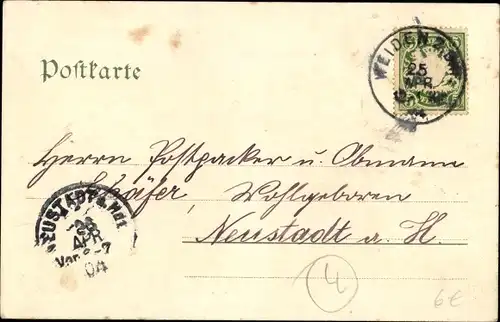 Postkarte
WEIDEN 2.B.
25
APR.
04
Herrn Postpacker u. Obmann
Schäfer, Wohlgeboren
Neustadt a. H.
NEUSTADT a. Hdt.
26
APR
Vor. 6-7
04
4
6€